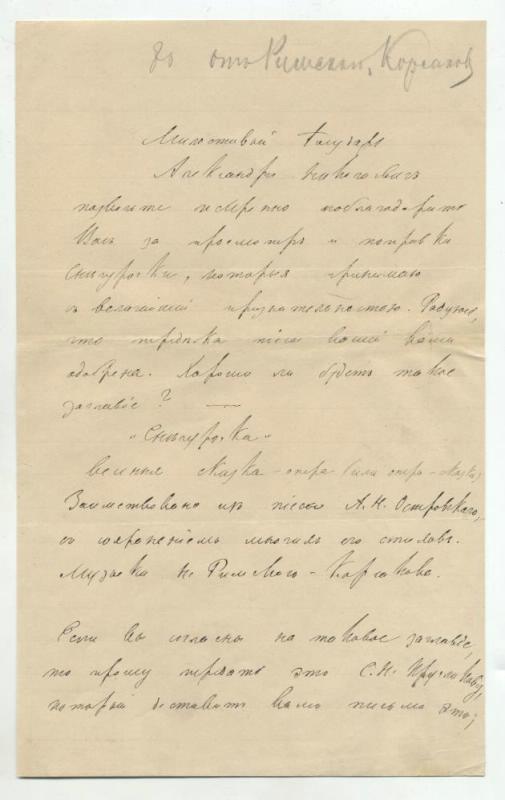 отъ Римскаго-Корсакова
Милостивый Государь
Александръ Николаевичъ
позвольте искренно поблагодарить
Васъ за просмотръ и поправки
Снѣгурочки, которыя принимаю
съ величайшей признательностью. Радуюсь,
что передѣлка піесы вашей вами
одобрена. Хорошо ли будетъ такое
заглавіе? —
„Снѣгурочка"
весенняя сказка – опера (или опера – сказка)
Заимствовано изъ піесы А. Н. Островскаго,
съ сохраненіемъ многихъ его стиховъ.
Музыка Н. Римскаго – Корсакова.
Если вы согласны на таковое заглавіе,
то прошу передать это С. Н. Кругликову,
который доставитъ вамъ письмо это;